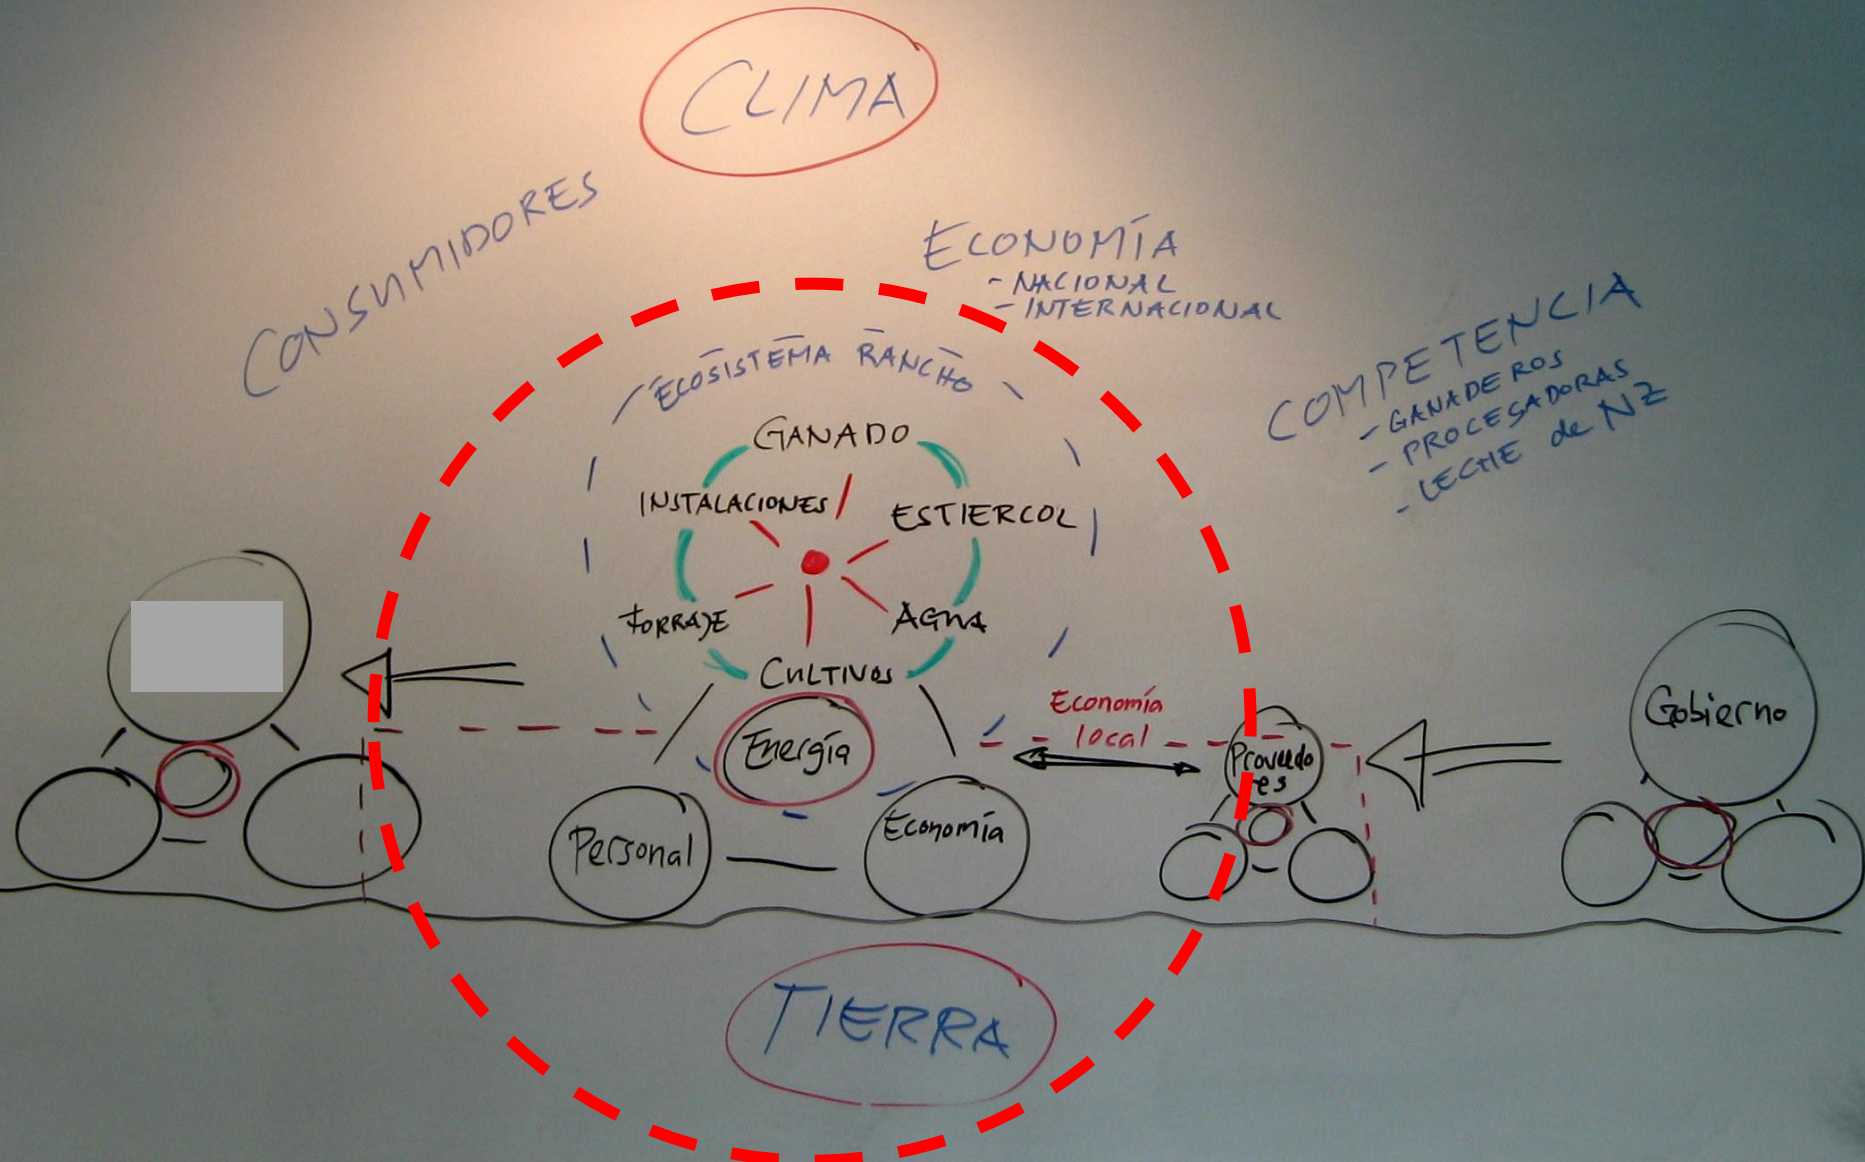 CLIMA
CONSUMIDORES
ECONOMÍA
- NACIONAL
- INTERNACIONAL
COMPETENCIA
- GANADEROS
- PROCESADORAS
- LECHE de NZ
ECOSISTEMA RANCHO
GANADO
INSTALACIONES
ESTIERCOL
FORRAJE
AGUA
CULTIVOS
Energía
Personal
Economía
Economía
local
Proveedo
es
Gobierno
TIERRA